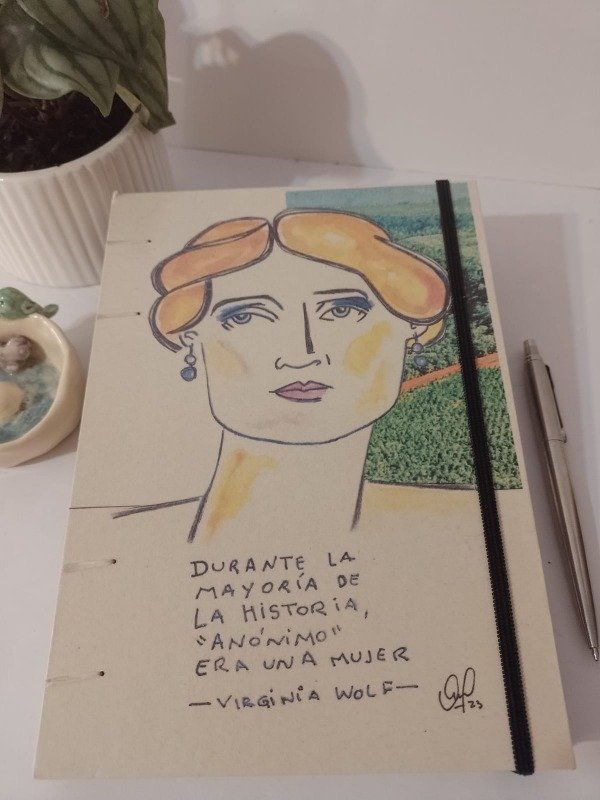 DURANTE LA
MAYORÍA DE
LA HISTORIA,
"ANÓNIMO"
ERA UNA MUJER
—VIRGINIA WOLF—
23